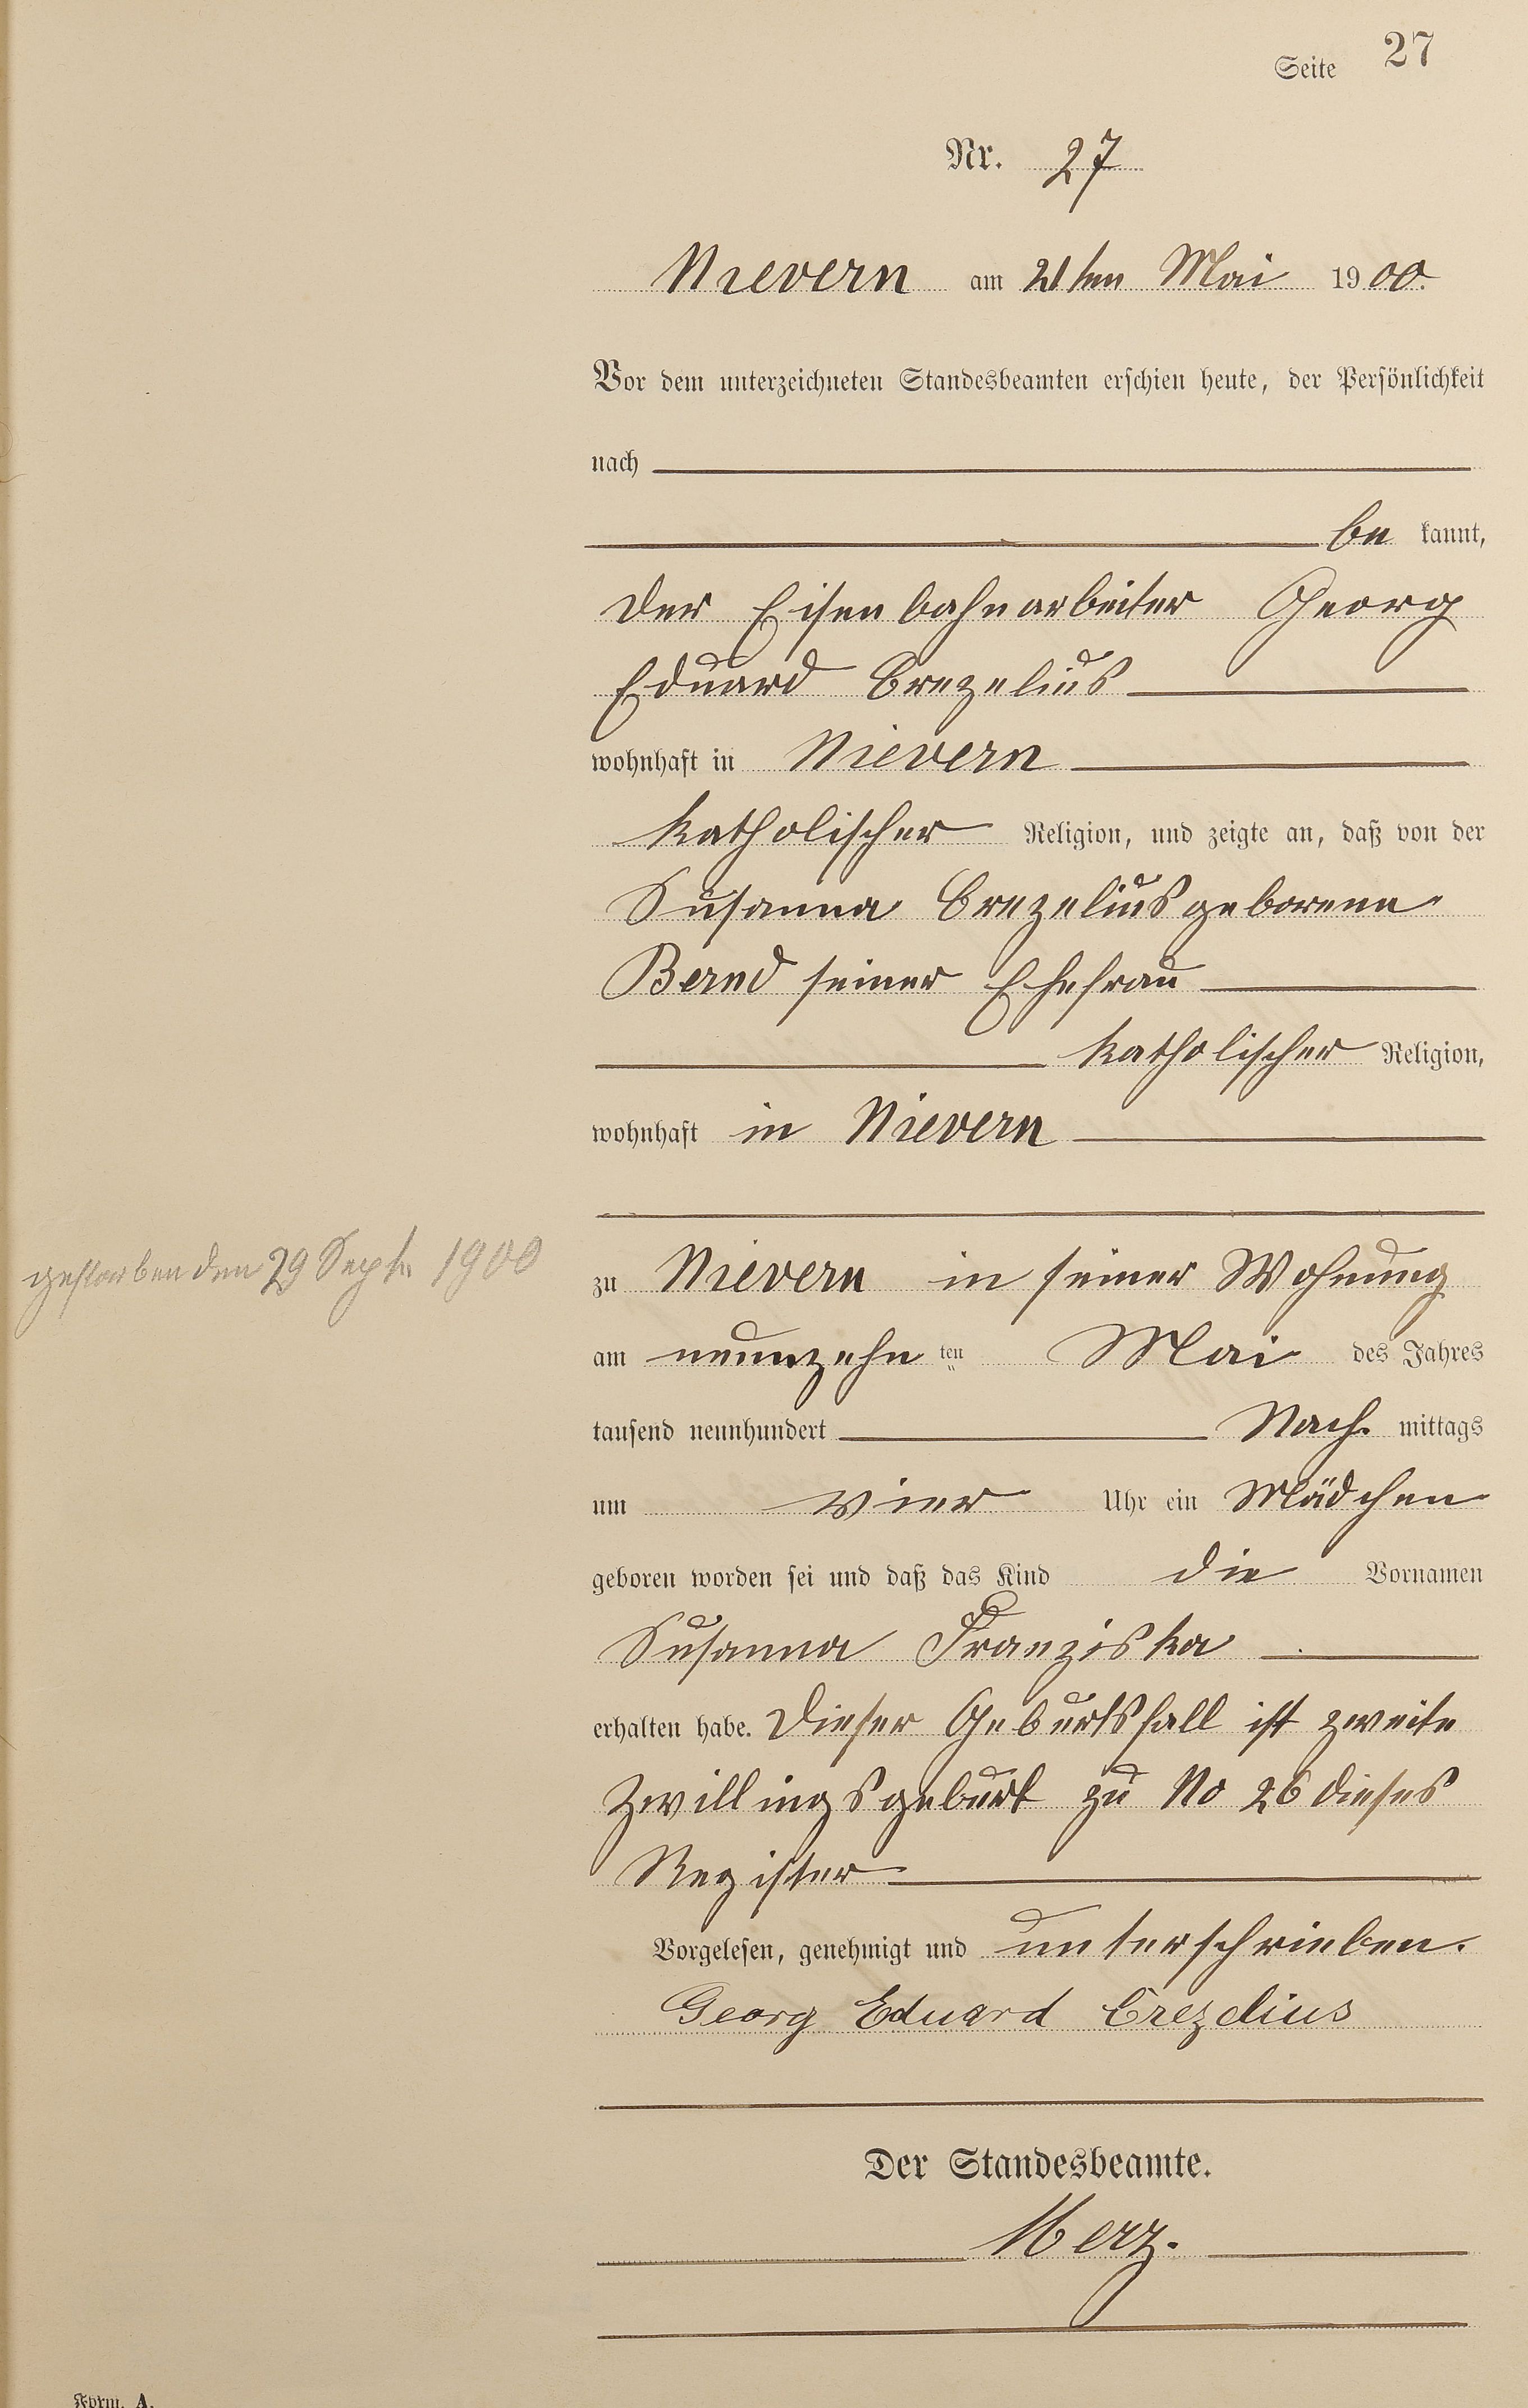 Seite 27
Nr. 27
Nievern am 21ten Mai 1900.
Vor dem unterzeichneten Standesbeamten erschien heute, der Persönlichkeit
nach
be kannt,
der Eisenbahnarbeiter Georg
Eduard Crezelius
wohnhaft in Nievern
katholischer Religion, und zeigte an, daß von der
Susanna Crezelius geborene
Bernd seiner Ehefrau
katholischer Religion,
wohnhaft in Nievern
gestorben den 29 Sept. 1900
zu Nievern in seiner Wohnung
am neunzehn ten Mai des Jahres
tausend neunhundert Nach. mittags
um vier Uhr ein Mädchen
geboren worden sei und daß das Kind die Vornamen
Susanna Franziska
erhalten habe. Dieser Geburtsfall ist zweite
Zwillingsgeburt zu No 26 dieses
Register
Vorgelesen, genehmigt und unterschrieben.
Georg Eduard Crezelius
Der Standesbeamte.
Merz.
Form. A.